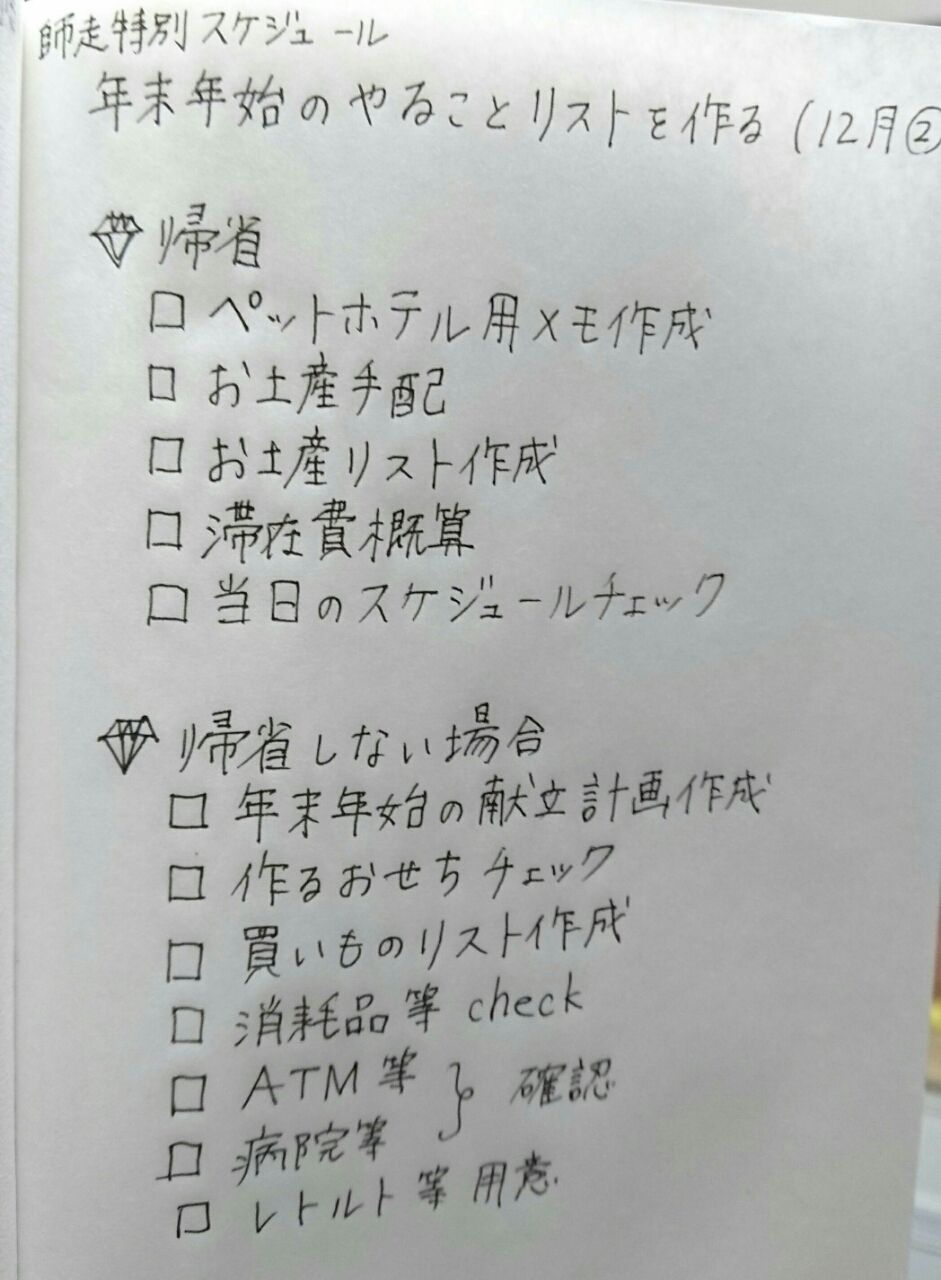 師走特別スケジュール
年末年始のやることリストを作る(12月②
帰省
□ ペットホテル用メモ作成
□ お土産手配
□ お土産リスト作成
□ 滞在費概算
□ 当日のスケジュールチェック
帰省しない場合
□ 年末年始の献立計画作成
□ 作るおせちチェック
□ 買いものリスト作成
□ 消耗品等 check
□ ATM等 } 確認
□ 病院等
□ レトルト等用意